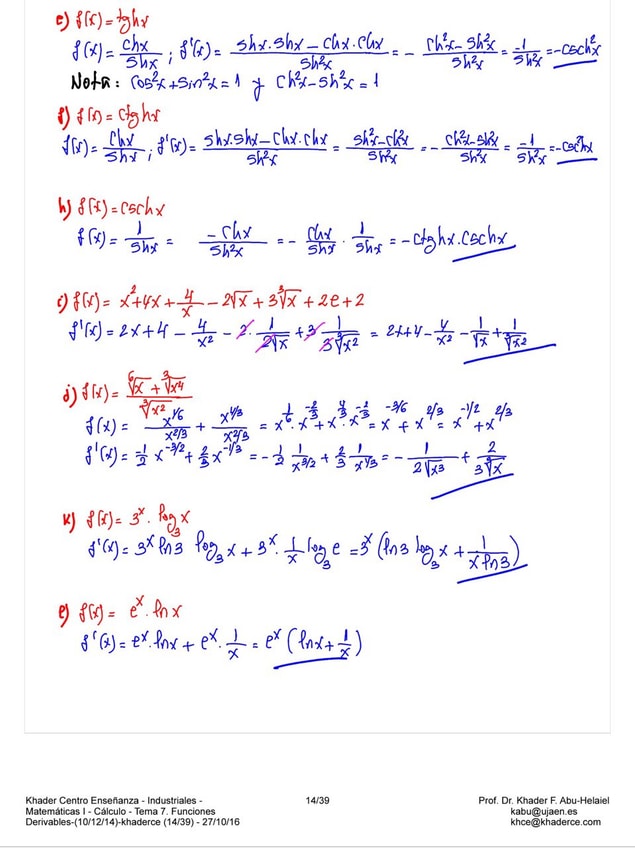 e) f(x) = tghx
f(x) = chx/shx ; f'(x) = (shx.shx − chx.chx)/sh²x = − (ch²x − sh²x)/sh²x = −1/sh²x = −csch²x
Nota: cos²x + sin²x = 1 y ch²x − sh²x = 1
f) f(x) = ctghx
f(x) = chx/shx ; f'(x) = (shx.shx − chx.chx)/sh²x = (sh²x − ch²x)/sh²x = − (ch²x − sh²x)/sh²x = −1/sh²x = −csch²x
h) f(x) = cschx
f(x) = 1/shx = −chx/sh²x = − chx/shx · 1/shx = −ctghx.cschx
i) f(x) = x² + 4x + 4/x − 2√x + 3∛x + 2e + 2
f'(x) = 2x + 4 − 4/x² − 2·1/(2√x) + 3·1/(3∛x²) = 2x + 4 − 4/x² − 1/√x + 1/∛x²
j) f(x) = (⁶√x + ∛x⁴)/∛x²
f(x) = x^(1/6)/x^(2/3) + x^(4/3)/x^(2/3) = x^(1/6)·x^(−2/3) + x^(4/3)·x^(−2/3) = x^(−3/6) + x^(2/3) = x^(−1/2) + x^(2/3)
f'(x) = −1/2 x^(−3/2) + 2/3 x^(−1/3) = − 1/2 1/x^(3/2) + 2/3 1/x^(1/3) = − 1/(2√x³) + 2/(3∛x)
k) f(x) = 3ˣ · log₃x
f'(x) = 3ˣ ln3 log₃x + 3ˣ · 1/x log₃e = 3ˣ (ln3 log₃x + 1/(x ln3))
l) f(x) = eˣ · lnx
f'(x) = eˣ · lnx + eˣ · 1/x = eˣ (lnx + 1/x)
Khader Centro Enseñanza - Industriales - 14/39 Prof. Dr. Khader F. Abu-Helaiel
Matemáticas I - Cálculo - Tema 7. Funciones kabu@ujaen.es
Derivables-(10/12/14)-khaderce (14/39) - 27/10/16 khce@khaderce.com